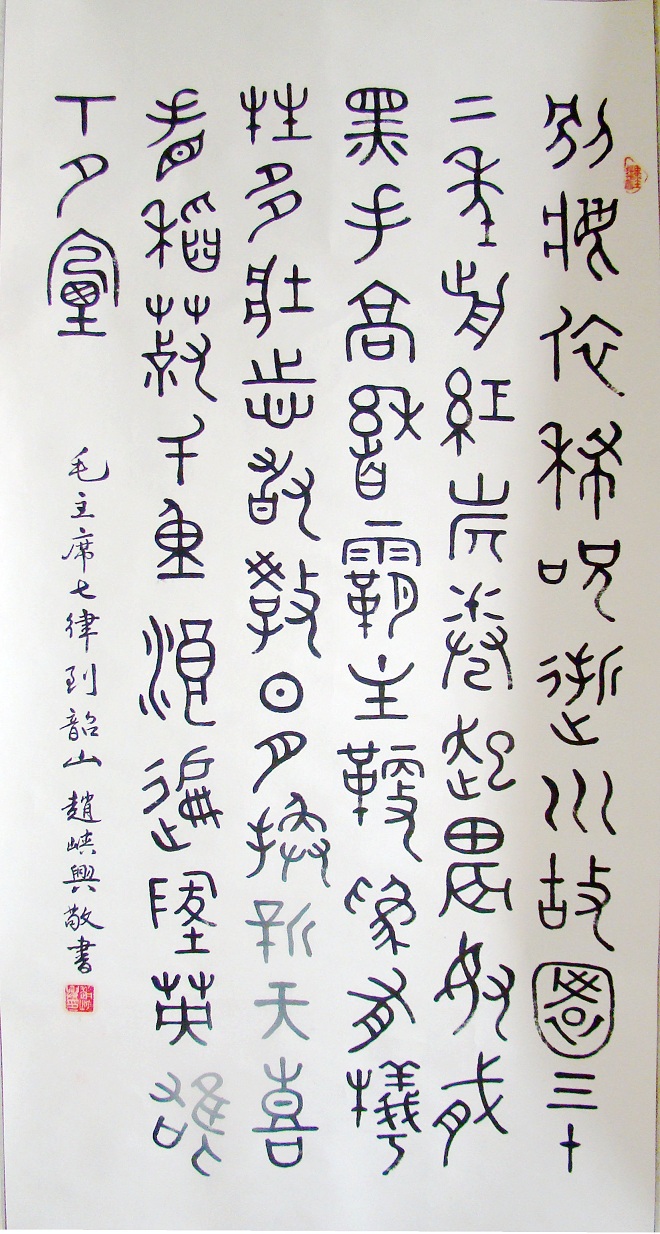 別夢依稀咒逝川故園三十
二年前紅旗捲起農奴戟
黑手高懸霸主鞭為有犧
牲多壯志敢教日月換新天喜
看稻菽千重浪遍地英雄
下夕煙
毛主席七律到韶山 趙峽興敬書